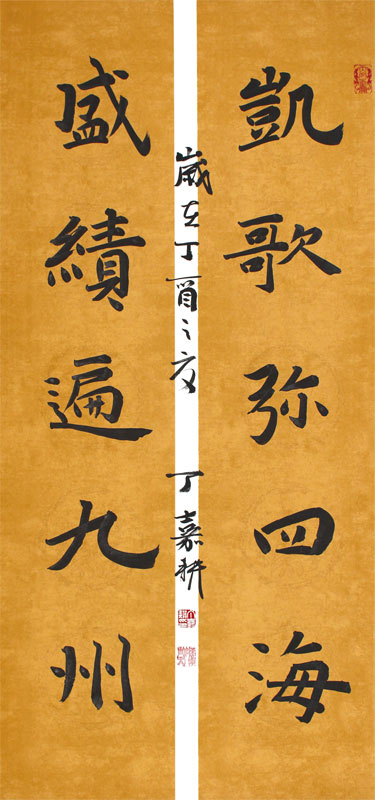 凱歌弥四海
盛績遍九州
嵗在丁酉之夏
丁嘉耕